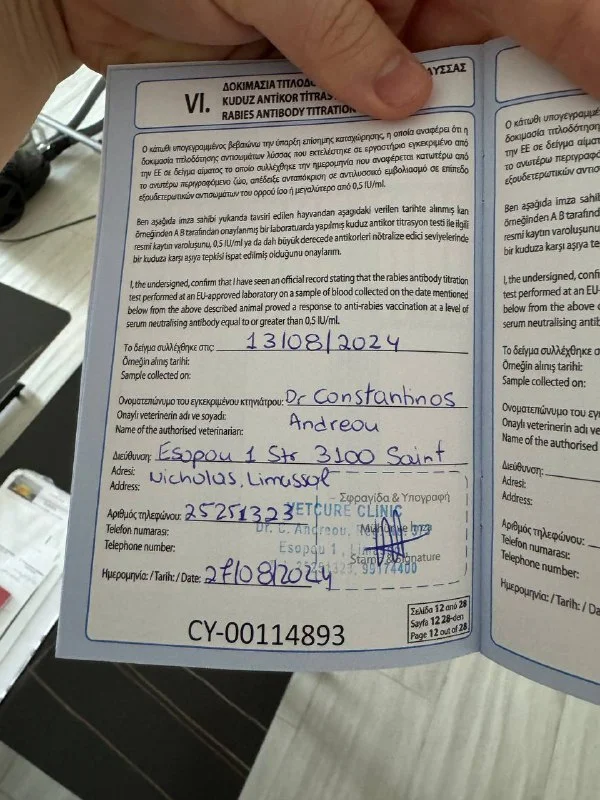 VI.
ΔΟΚΙΜΑΣΙΑ ΤΙΤΛΟΔΟ ΛΥΣΣΑΣ
KUDUZ ANTİKOR TİTRAS
RABIES ANTIBODY TITRATION
Ο κάτωθι υπογεγραμμένος βεβαιώνω την ύπαρξη επίσημης καταχώρησης, η οποία αναφέρει ότι η
δοκιμασία τιτλοδότησης αντισωμάτων λύσσας που εκτελέστηκε σε εργαστήριο εγκεκριμένο από
την ΕΕ σε δείγμα αίματος το οποίο συλλέχθηκε την ημερομηνία που αναφέρεται κατωτέρω από
το ανωτέρω περιγραφόμενο ζώο, απέδειξε ανταπόκριση σε αντιλυσσικό εμβολιασμό σε επίπεδο
εξουδετερωτικών αντισωμάτων του ορρού ίσο ή μεγαλύτερο από 0,5 IU/ml.
Ben aşağıda imza sahibi yukarıda tavsiri edilen hayvandan aşağıdaki verilen tarihte alınmış kan
örneğinden A B tarafından onaylanmış bir laboratuarda yapılmış kuduz antikor titrasyon testi ile ilgili
resmi kayıtın varoluşunu, 0,5 IU/ml ya da dah büyük derecede antikorleri nötralize edici seviyelerinde
bir kuduza karşı aşıya tepkisi ispat edilmiş olduğunu onaylarım.
I, the undersigned, confirm that I have seen an official record stating that the rabies antibody titration
test performed at an EU-approved laboratory on a sample of blood collected on the date mentioned
below from the above described animal proved a response to anti-rabies vaccination at a level of
serum neutralising antibody equal to or greater than 0,5 IU/ml.
Το δείγμα συλλέχθηκε στις: 13/08/2024
Örneğin alınış tarihi:
Sample collected on:
Ονοματεπώνυμο του εγκεκριμένου κτηνιάτρου: Dr Constantinos
Onaylı veterinerin adı ve soyadı: Andreou
Name of the authorised veterinarian:
Διεύθυνση: Esopou 1 Str 3100 Saint
Adresi: Nicholas, Limassol
Address:
Σφραγίδα & Υπογραφή
Αριθμός τηλεφώνου: 25251323 VETCURE CLINIC
Telefon numarası: Dr. C. Andreou,
Telephone number: Esopou 1,
Stamp & Signature
99174400
Ημερομηνία: / Tarih: / Date: 27/08/2024
CY-00114893
Σελίδα 12 από 28
Sayfa 12 28-den
Page 12 out of 28
Ο κάτωθι υπογεγραμμέ
δοκιμασία τιτλοδότησ
την ΕΕ σε δείγμα αίμα
το ανωτέρω περιγραφό
εξουδετερωτικών αντισ
Ben aşağıda imza sahib
örneğinden A B tarafınd
resmi kayıtın varoluşun
bir kuduza karşı aşıya te
I, the undersigned, confirm
test performed at an EU-
below from the above d
serum neutralising antib
Το δείγμα συλλέχθηκε στ
Örneğin alınış tarihi:
Sample collected on:
Ονοματεπώνυμο του εγ
Onaylı veterinerin adı ve
Name of the authorised
Διεύθυνση:
Adresi:
Address:
Αριθμός τηλεφώνου:
Telefon numarası:
Telephone number:
Ημερομηνία: / Tarih: / Da